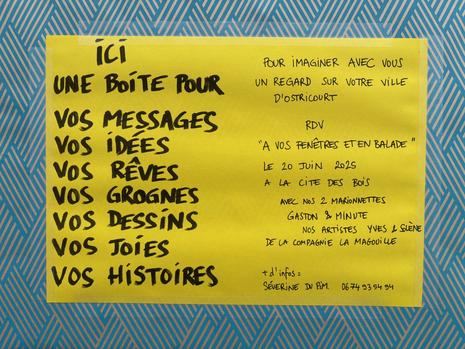 ICI
UNE BOÎTE POUR
VOS MESSAGES
VOS IDÉES
VOS RÊVES
VOS GROGNES
VOS DESSINS
VOS JOIES
VOS HISTOIRES
POUR IMAGINER AVEC VOUS
UN REGARD SUR VOTRE VILLE
D'OSTRICOURT
RDV
"A VOS FENÊTRES ET EN BALADE"
LE 20 JUIN 2025
A LA CITE DES BOIS
AVEC NOS 2 MARIONNETTES
GASTON & MINUTE
NOS ARTISTES YVES & SLÈNE
DE LA COMPAGNIE LA MAGOUILLE
+ d'infos :
SÉVERINE DU 06 74 93 54 94